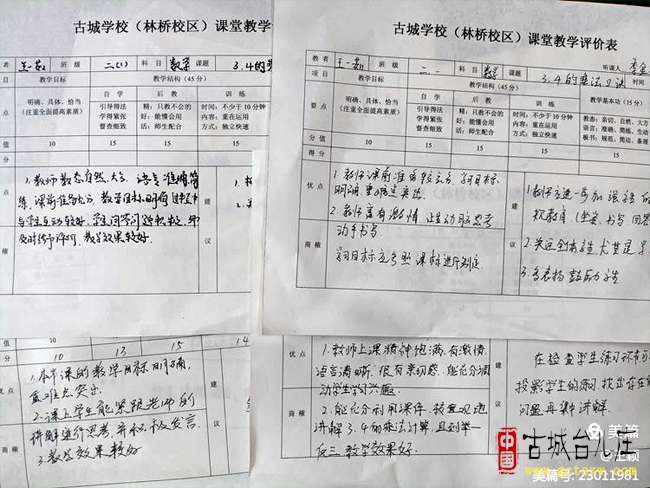 古城学校（林桥校区）课堂教学
教者 王一茹 班级 二(1) 科目 数学 课题 3.4的
项目 教学目标 教学结构（45分）
自学 后教 训练
要点 明确、具体、恰当
（注重全面提高素质） 引导得法
学得紧张
督查细致 精：只教不会的
好：能懂会用
活：师生配合 时间：不少于10分钟
内容：重在运用
方式：独立快速
分值 10 15 15 15
得分
优点 1.教师教态自然、大方，语言准确简
练，课前准备充分，教学目标明确，过程中
与学生互动较好，学生回答问题积极，并
及时给予评价，教学效果较好。
商榷
建议
古城学校（林桥校区）课堂教学评价表
教者 王一茹 班级 二.一 科目 数学 课题 3.4的乘法口诀 听课人
项目 教学目标 教学结构（45分） 时间
自学 后教 训练 教学基本功（15分）
要点 明确、具体、恰当
（注重全面提高素质） 引导得法
学得紧张
督查细致 精：只教不会的
好：能懂会用
活：师生配合 时间：不少于10分钟
内容：重在运用
方式：独立快速 教态：亲切、自然、大方
语言：准确、简练、生动
板书：规范、简明、
分值 10 15 15 15 15
得分
优点 1.教师课前准备较充分，学习目标
明确，重难点突出
2.教师富有激情，让生动脑思考
动手书写
商榷 学习目标应参照课标进行制定
建议 1.教师应进一步加强
2.关注全体学生尤其是
3.多表扬鼓励学生
分 10 13 15 14
优点 1.本节课的教学目标明确，
重难点突出。
2.课上学生能紧跟老师的
商榷 讲解进行思考，并积极发言。
3.教学效果较好
优点 1.教师上课精神饱满，有激情
语言清晰，很有亲和感，能充分调
动学生学习兴趣。
商榷 2.能充分利用课件，较直观地
讲解3.4的乘法计算，且列举一
反三，教学效果好。
建议 在检查学生练习环节
投影学生的练习，找出存在
问题再集中讲解。
美篇
中国 古城台儿庄
美篇号：23011981